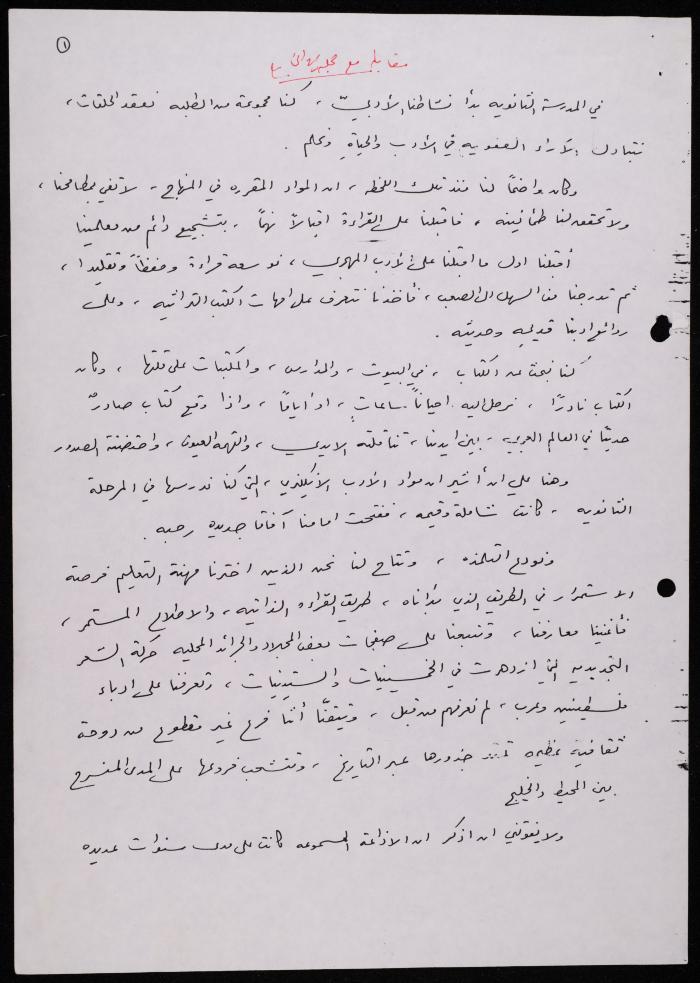 ١
مقابلة مع مجلة
في المدرسة الثانويه بدأ نشاطنا الأدبيّ ، كنا مجموعة من الطلبه نعقد الحلقات ،
نتبادل الآراء العفويه في الأدب والحياة ونحلم .
وكان واضحًا لنا منذ تلك اللحظه ، ان المواد المقرره في المنهاج ، لا تفي بمطامحنا ،
ولا تحقق لنا طمأنينه ، فاقبلنا على القراءة اقبالاً نهمًا ، بتشجيع دائم من معلمينا
أقبلنا اول ما اقبلنا على الأدب المهجري ، نوسعه قراءة وحفظاً وتقليدا ،
ثم تدرجنا من السهل الى الصعب ، فأخذنا نتعرف على امهات الكتب التراثيه ، وعلى
روائع ادبنا قديمه وحديثه .
كنا نبحث عن الكتاب ، في البيوت ، والمدارس ، والمكتبات على قلتها ، وكان
الكتاب نادرًا ، نرحل اليه احياناً ساعات ، او أيامًا ، واذا وقع كتاب صادرٌ
حديثا في العالم العربي ، بين ايدينا ، تناقلته الايدي ، والتهمته العيون ، واحتضنته الصدور
وهنا علي ان أشير ان مواد الأدب الانكليزي ، التي كنا ندرسها في المرحلة
الثانويه ، كانت شاملة وقيمه ، ففتحت امامنا آفاقا جديده رحبه .
ونودع التلمذه ، وتتاح لنا نحن الذين اخترنا مهنة التعليم فرصة
الاستمرار في الطريق الذي بدأناه ، طريق القراءه الذاتيه ، والاطلاع المستمر ،
فأغنينا معارفنا ، وتتبعنا على صفحات بعض المجلات والجرائد المحليه حركة الشعر
التجديديه التي ازدهرت في الخمسينيات والستينيات ، وتعرفنا على ادباء
فلسطينيين وعرب ، لم نعرفهم من قبل ، وتيقنّا أننا فرع غير مقطوع من دوحة
ثقافية عظيمه تمتد جذورها عبر التاريخ ، وتتشعب فروعها على المدى المنسرح
بين المحيط والخليج
ولا يفوتني ان اذكر ان الاذاعة المسموعه كانت على مدى سنوات عديده